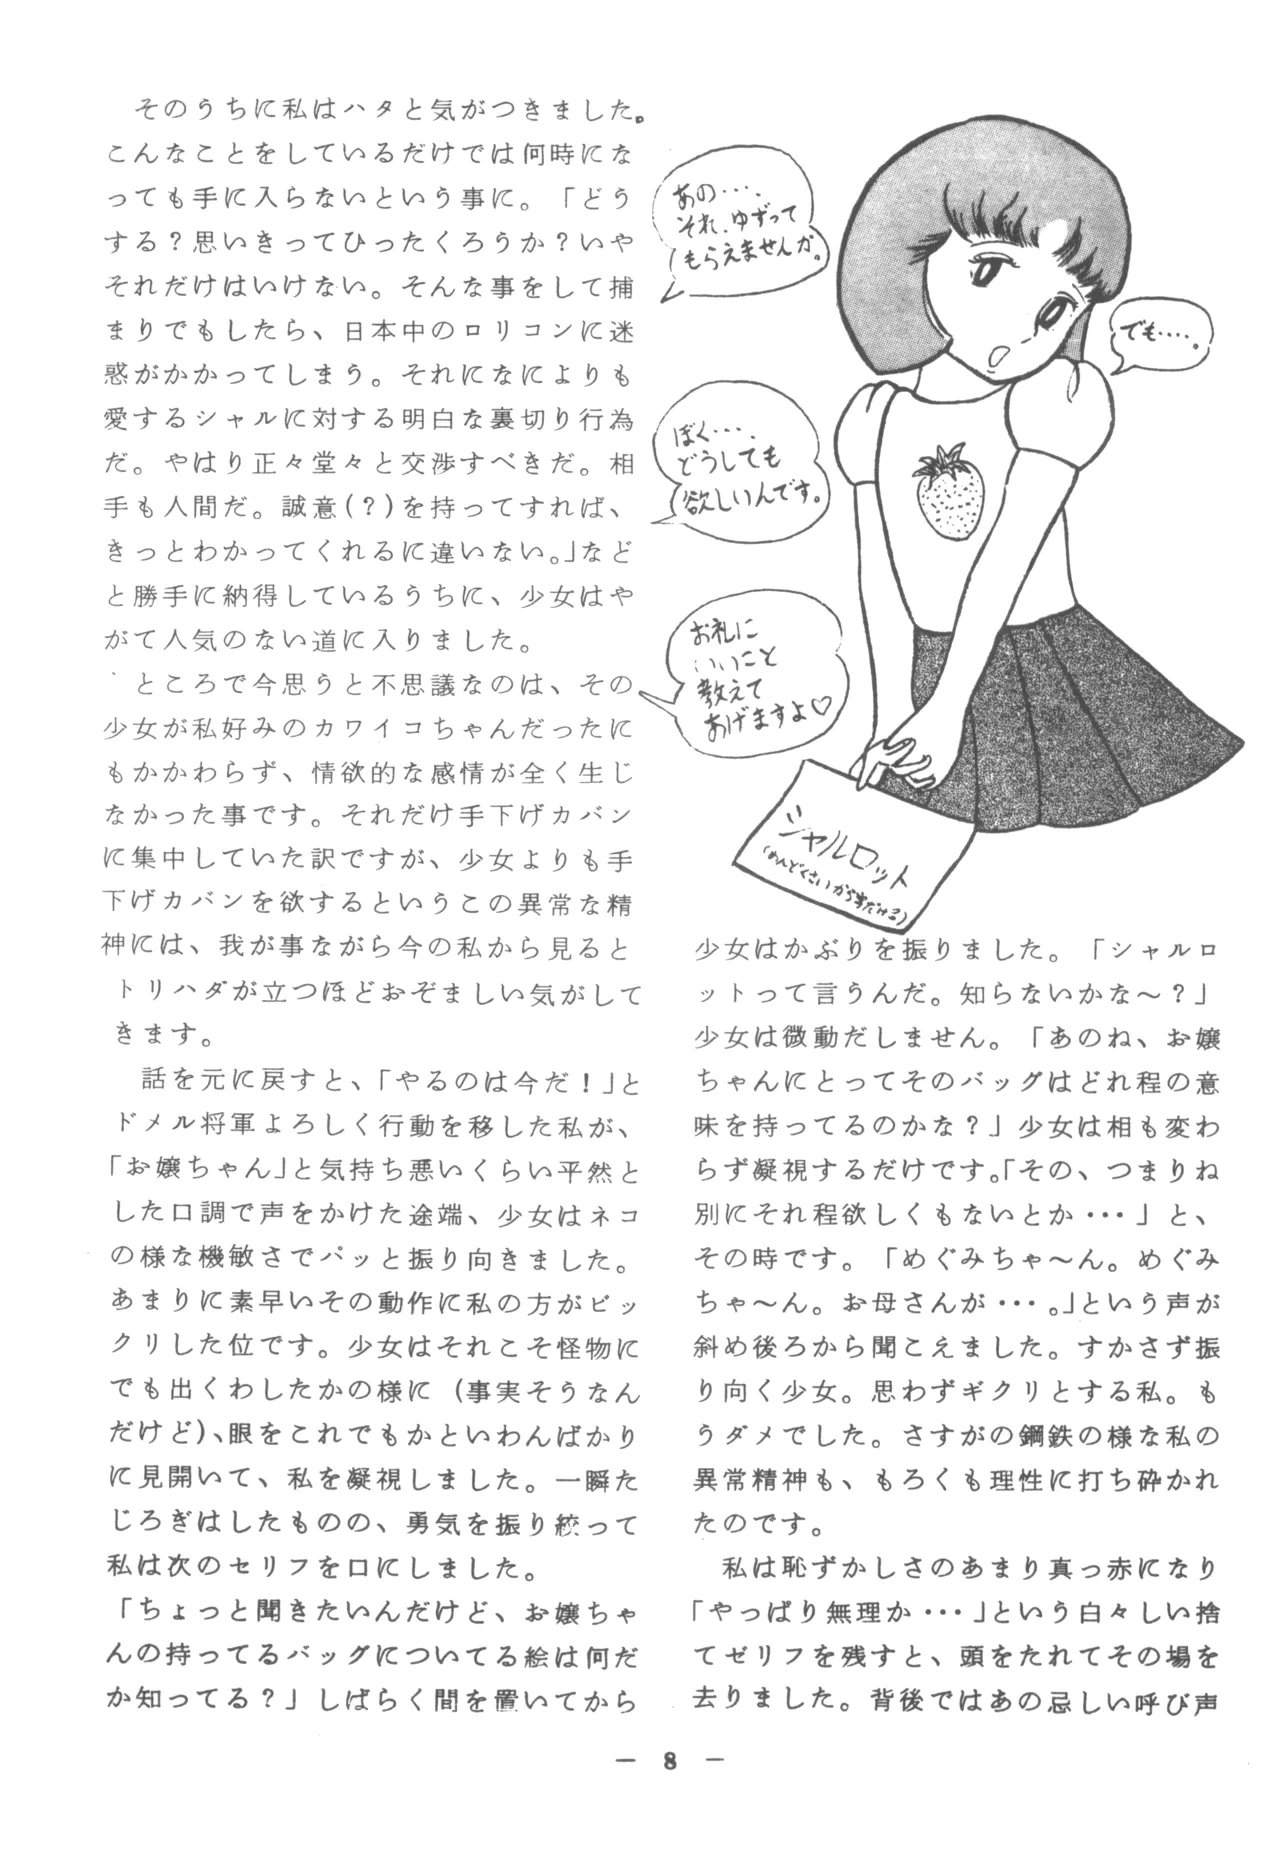 そのうちに私はハタと気がつきました。
こんなことをしているだけでは何時にな
っても手に入らないという事に。「どう
する？思いきってひったくろうか？いや
それだけはいけない。そんな事をして捕
まりでもしたら、日本中のロリコンに迷
惑がかかってしまう。それになによりも
愛するシャルに対する明白な裏切り行為
だ。やはり正々堂々と交渉すべきだ。相
手も人間だ。誠意(？)を持ってすれば、
きっとわかってくれるに違いない。」など
と勝手に納得しているうちに、少女はや
がて人気のない道に入りました。
ところで今思うと不思議なのは、その
少女が私好みのカワイコちゃんだったに
もかかわらず、情欲的な感情が全く生じ
なかった事です。それだけ手下げカバン
に集中していた訳ですが、少女よりも手
下げカバンを欲するというこの異常な精
神には、我が事ながら今の私から見ると
トリハダが立つほどおぞましい気がして
きます。
話を元に戻すと、「やるのは今だ！」と
ドメル将軍よろしく行動を移した私が、
「お嬢ちゃん」と気持ち悪いくらい平然と
した口調で声をかけた途端、少女はネコ
の様な機敏さでパッと振り向きました。
あまりに素早いその動作に私の方がビッ
クリした位です。少女はそれこそ怪物に
でも出くわしたかの様に（事実そうなん
だけど)、眼をこれでもかといわんばかり
に見開いて、私を凝視しました。一瞬た
じろぎはしたものの、勇気を振り絞って
私は次のセリフを口にしました。
「ちょっと聞きたいんだけど、お嬢ちゃ
んの持ってるバッグについてる絵は何だ
か知ってる？」しばらく間を置いてから
あの・・・・
それ、ゆずって
もらえませんか。
でも・・・・・。
ぼく・・・・
どうしても
欲しいんです。
お礼に
いいこと
教えて
あげますよ♡
シャルロット
(めんどくさいから字だける)
少女はかぶりを振りました。「シャルロ
ットって言うんだ。知らないかな〜？」
少女は微動だしません。「あのね、お嬢
ちゃんにとってそのバッグはどれ程の意
味を持ってるのかな？」少女は相も変わ
らず凝視するだけです。「その、つまりね
別にそれ程欲しくもないとか・・・」と、
その時です。「めぐみちゃ〜ん。めぐみ
ちゃ〜ん。お母さんが・・・。」という声が
斜め後ろから聞こえました。すかさず振
り向く少女。思わずギクリとする私。も
うダメでした。さすがの鋼鉄の様な私の
異常精神も、もろくも理性に打ち砕かれ
たのです。
私は恥ずかしさのあまり真っ赤になり
「やっぱり無理か・・・」という白々しい捨
てゼリフを残すと、頭をたれてその場を
去りました。背後ではあの忌しい呼び声
— 8 —